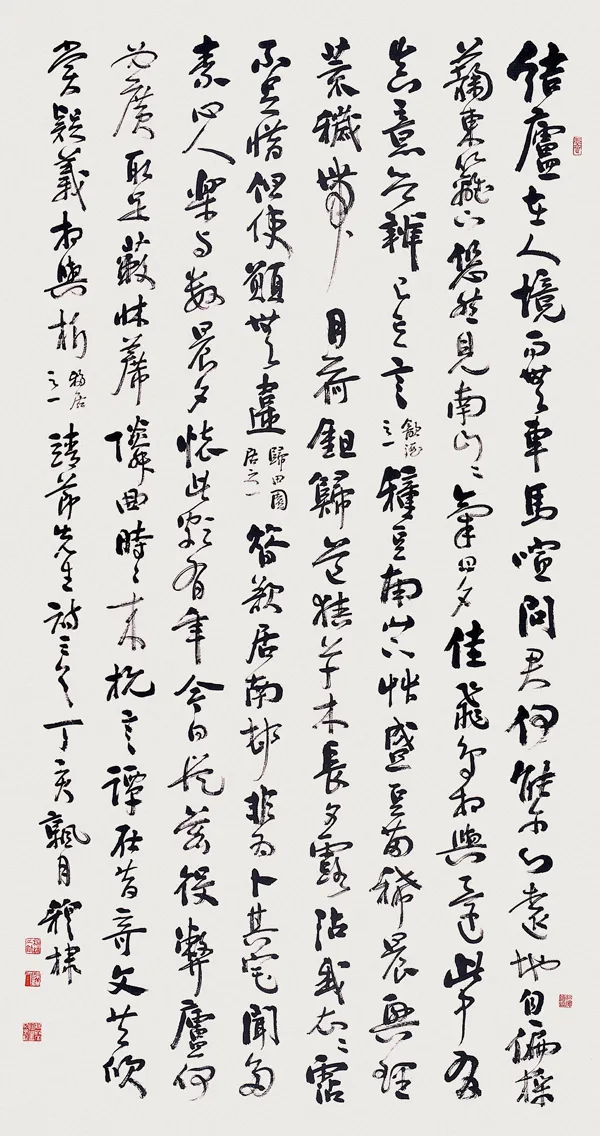 结廬在人境而無車馬喧問君何能尔心遠地自偏採
蘜東籬下悠然見南山〻氣日夕佳飛鳥相與還此中有
真意欲辨已忘言飲酒之一種豆南山下艸盛豆苗稀晨興理
荒穢帶月荷鉏歸道狹草木長夕露沾我衣〻霑
不足惜但使願無違歸田園居之一昔欲居南邨非為卜其宅聞多
素心人樂与數晨夕懷此頗有年今日從茲役弊廬何
必廣取足蔽牀席隣曲時〻來抗言譚在昔奇文共欣
賞疑義相與析移居之一靖節先生詩三首丁亥飄月穆棣